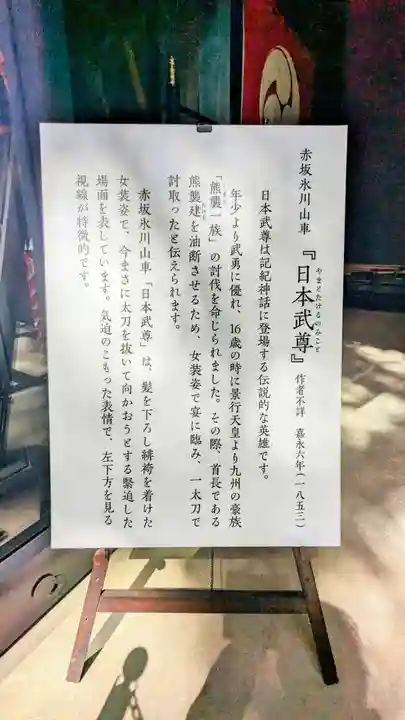 赤坂氷川山車『日本武尊』 作者不詳 嘉永六年(一八五三)
やまとたけるのみこと
日本武尊は記紀神話に登場する伝説的な英雄です。
年少より武勇に優れ、16歳の時に景行天皇より九州の豪族
「熊襲一族」の討伐を命じられました。その際、首長である
熊襲建を油断させるため、女装姿で宴に臨み、一太刀で
討取ったと伝えられます。
赤坂氷川山車「日本武尊」は、髪を下ろし緋袴を着けた
女装姿で、今まさに太刀を抜いて向かおうとする緊迫した
場面を表しています。気迫のこもった表情で、左下方を見る
視線が特徴的です。